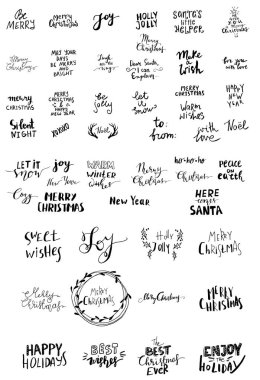 Be
MERRY
MERRY
Christmas
Joy
HOLLY
JOLLY
SANTA'S
LITTLE
HELPER
WISH
YOU
CHRISTMAS
Merry
Christmas
MAY YOUR
DAYS
BE MERRY
BRIGHT
Merry
Christmas
Dear Santa,
I can
Explain
Make
a
Wish
for you
with love
MERRY
CHRISTMAS
MERRY
CHRISTMAS
&
NEW YEAR
be
jolly
let
it
snow
MERRY
CHRISTMAS
HAPPY
NEW
YEAR
SILENT
NIGHT
XOXO
Noel
WARM
WISHES
to:
from:
with
love
Noël
LET IT
SNOW
joy
New Year
WARM
WINTER
WISHES
Merry
Christmas
ho-ho-ho
Christmas
PEACE
on
earth
Cozy
MERRY
CHRISTMAS
New Year
HERE
comes
SANTA
SWEET
WISHES
Joy
Holly
Jolly
MERRY
CHRISTMAS
Merry
Christmas
MERRY
CHRISTMAS
Merry Christmas
MERRY
CHRISTMAS
HAPPY
HOLIDAYS
BEST
wishes
THE
BEST
Christmas
EVER
ENJOY
the
HOLIDAY